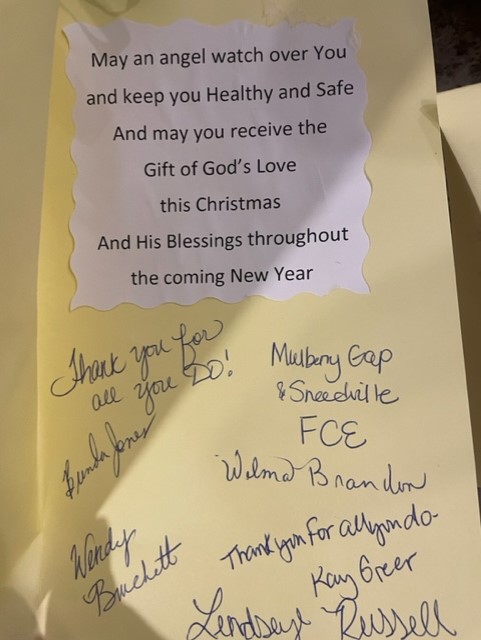 May an angel watch over You
and keep you Healthy and Safe
And may you receive the
Gift of God's Love
this Christmas
And His Blessings throughout
the coming New Year
Thank you for
all you DO!
Mulberry Gap
& Sneedville
FCE
Jones
Wilma Brandon
Wendy
Burchett
Thank you for all you do-
Kay Greer
Lendseye Russell